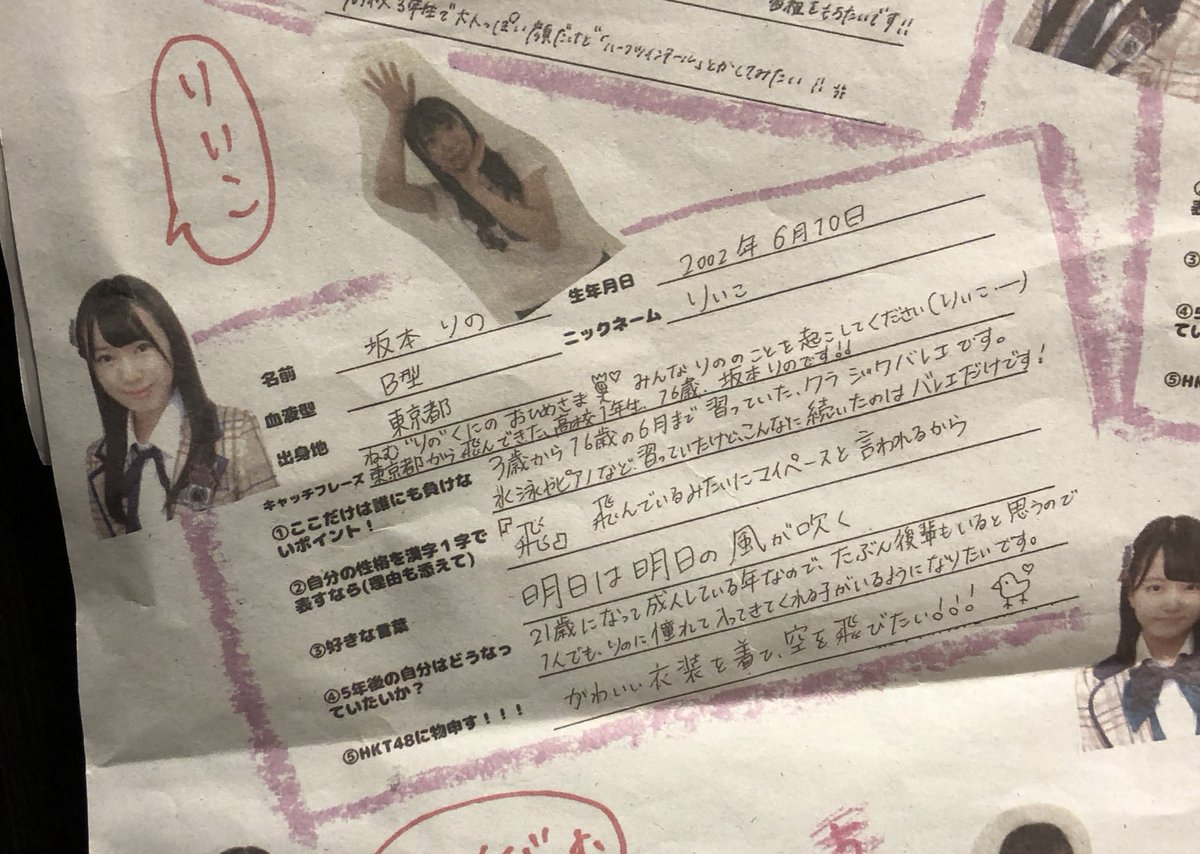 番組をもちたいです!!
高校3年生で大人っぽい顔だけど「ハーフツインテール」とかしてみたい!!
りいこ
名前 坂本 りの
生年月日 2002年6月10日
血液型 B型
ニックネーム りいこ
出身地 東京都
キャッチフレーズ ねむ"りの"くにのおひめさま みんなりののことを起こしてください(りいこー)
東京都から飛んできた、高校1年生、16歳、坂本りのです!!
①ここだけは誰にも負けないポイント!
3歳から16歳の6月まで習っていた、クラシックバレエです。
水泳やピアノなど、習っていたけど、こんなに続いたのはバレエだけです!
②自分の性格を漢字1字で
表すなら(理由も添えて)
『飛』 飛んでいるみたいにマイペースと言われるから
③好きな言葉
明日は明日の風が吹く
④5年後の自分はどうなっ
ていたいか?
21歳になって成人している年なので、たぶん後輩もいると思うので
1人でも、りのに憧れて入ってきてくれる子がいるようになりたいです。
⑤HKT48に物申す!!!
かわいい衣装を着て、空を飛びたい!!!
③
④5
てい
⑤HK